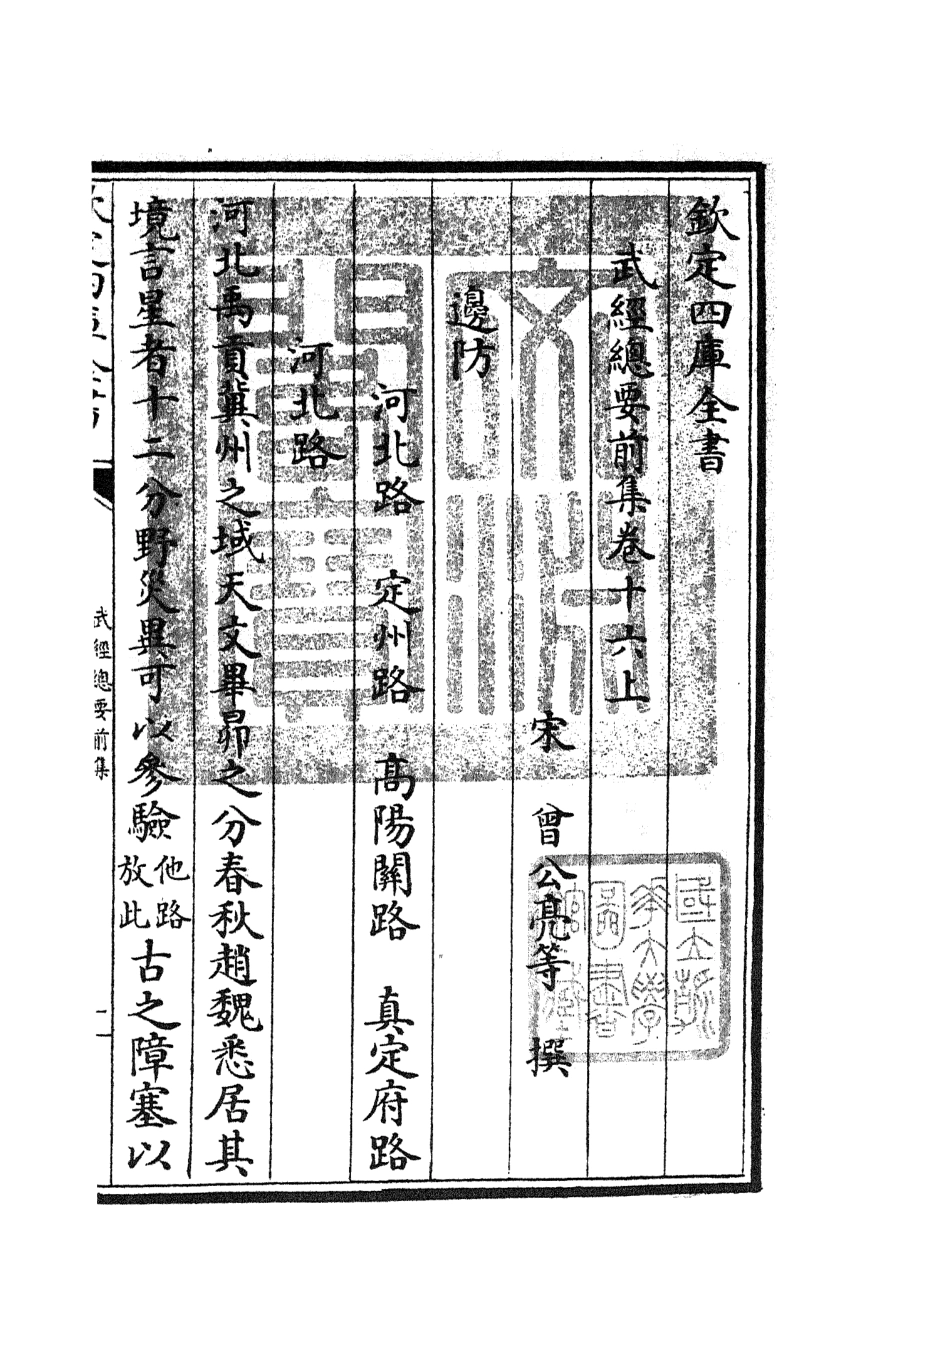 欽定四庫全書
武經總要前集卷十六上
宋　曾公亮等　撰
邊防
河北路　定州路　高陽關路　真定府路
河北路
河北禹貢冀州之域天文畢昴之分春秋趙魏悉居其
境言星者十二分野災異可以參驗他路放此古之障塞以
武經總要前集